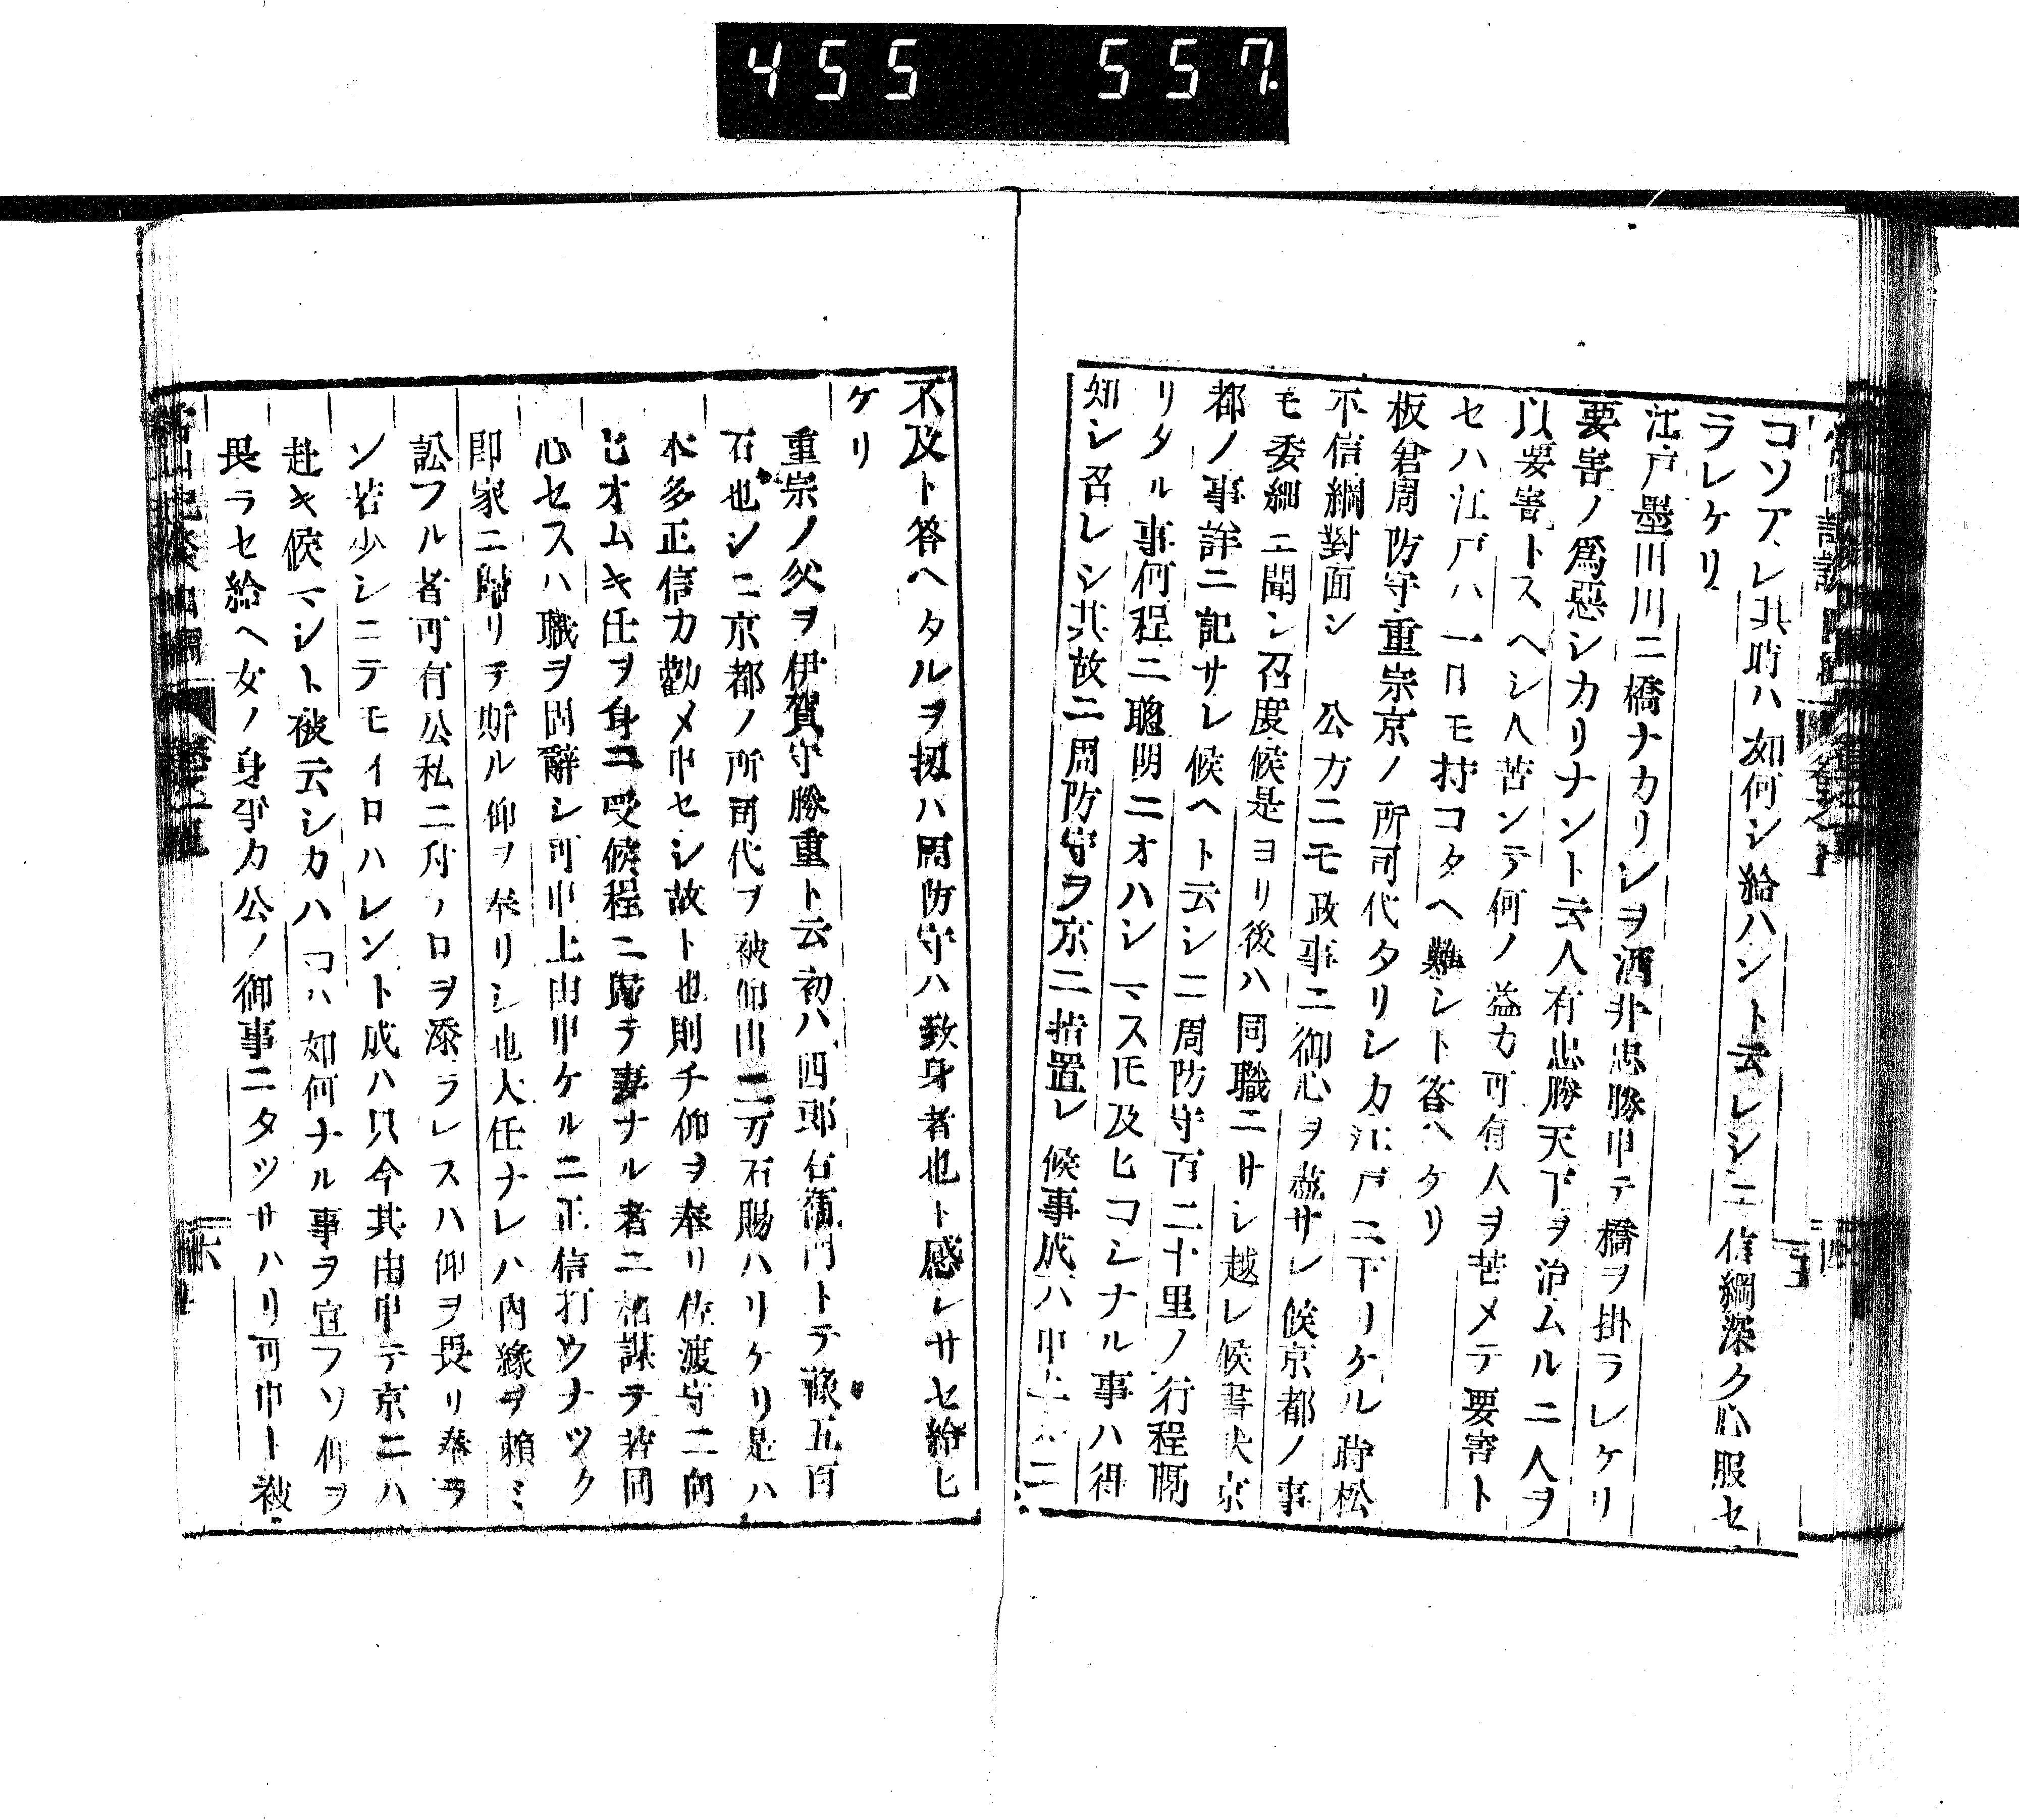 455 557
コソアレ其時ハ如何シ給ハント云レシニ信綱深ク心服セ
ラレケリ
江戸墨田川ニ橋ナカリシヲ酒井忠勝申テ橋ヲ掛ラレケリ
要害ノ爲惡シカリナント云人有忠勝天下ヲ治ムルニ人ヲ
以要害トスヘシ人苦ンテ何ノ益カ可有人ヲ苦メテ要害ト
セハ江戸ハ一日モ持コタヘ難シト答ヘケリ
板倉周防守重宗京ノ所司代タリシカ江戸ニ下リケル時松
平信綱對面シ 公方ニモ政事ニ御心ヲ盡サレ候京都ノ事
モ委細ニ聞シ召度候是ヨリ後ハ同職ニサシ越レ候書状京
都ノ事詳ニ記サレ候ヘト云シニ周防守百二十里ノ行程隔
リタル事何程ニ聰明ニオハシマストモ及ヒコシナル事ハ得
知シ召レシ其故ニ周防守ヲ京ニ措置レ候事成ハ申上
不及ト答ヘタルヲ扨ハ周防守ハ致身者也ト感シサセ給ヒ
ケリ
重宗ノ父ヲ伊賀守勝重ト云初ハ四郎右衞門トテ祿五百
石也シニ京都ノ所司代ヲ被仰出二万石賜ハリケリ是ハ
本多正信カ勸メ申セシ故ト也則チ仰ヲ奉リ佐渡守ニ向
ヒオムキ任ヲ身ニ受候程ニ歸テ妻ナル者ニ相謀テ若同
心セスハ職ヲ固辭シ可申上由申ケルニ正信打ウナツク
即家ニ歸リテ斯ル仰ヲ奉リシ也大任ナレハ内縁ヲ頼ミ
訟フル者可有公私ニ付ノロヲ添ラレスハ仰ヲ畏リ奉ラ
ン若少シニテモイロハレント成ハ只今其由申テ京ニハ
赴キ候マシト被云シカハコハ如何ナル事ヲ宣フソ仰ヲ
畏ラセ給ヘ女ノ身爭カ公ノ御事ニタツサハリ可申ト被